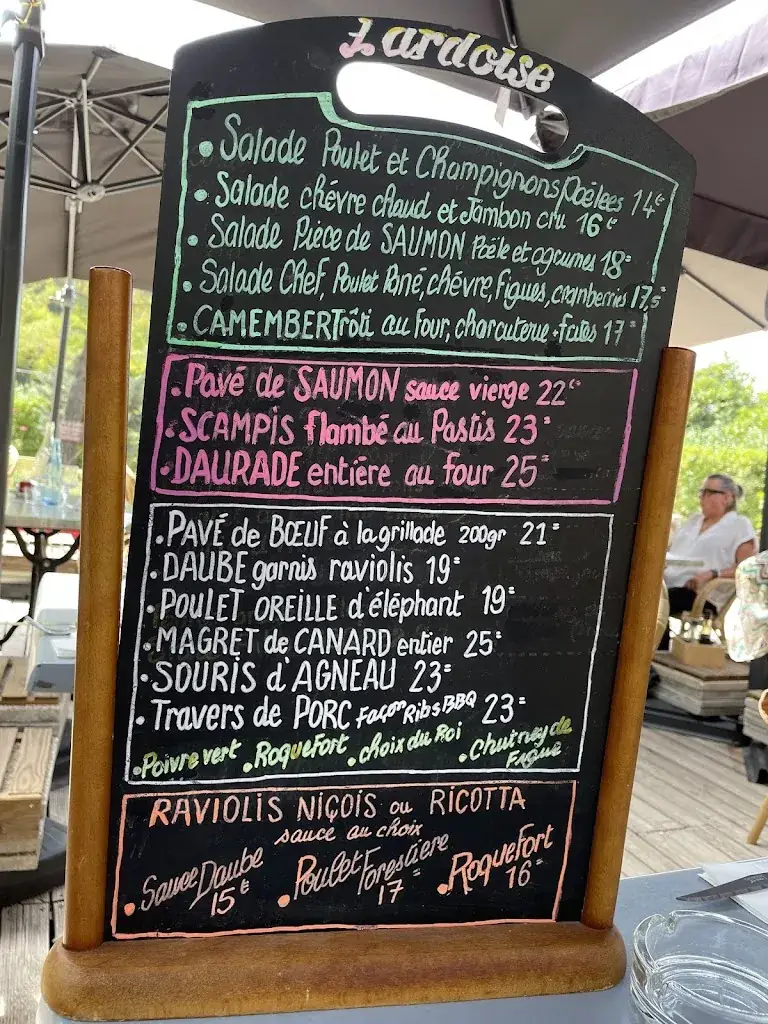 L'ardoise
• Salade Poulet et Champignons Poêlées 14€
• Salade chévre chaud et Jambon cru 16€
• Salade Pièce de SAUMON Poêle et agrumes 18€
• Salade Chef, Poulet Pané, chévre, figues, cranberries 17,5
• CAMEMBERT rôti au four, charcuterie + frites 17€
• Pavé de SAUMON sauce vierge 22€
• SCAMPIS flambé au Pastis 23€
• DAURADE entière au four 25€
• PAVÉ de BŒUF à la grillade 200gr 21€
• DAUBE garnis raviolis 19€
• POULET OREILLE d'éléphant 19€
• MAGRET de CANARD entier 25€
• SOURIS d'AGNEAU 23€
• Travers de PORC Façon Ribs BBQ 23€
• Poivre vert • Roquefort • choix du Roi • Chutney de
Figue
RAVIOLIS NIÇOIS ou RICOTTA
sauce au choix
• Sauce Daube • Poulet Forestiere • Roquefort
15€ 17€ 16€